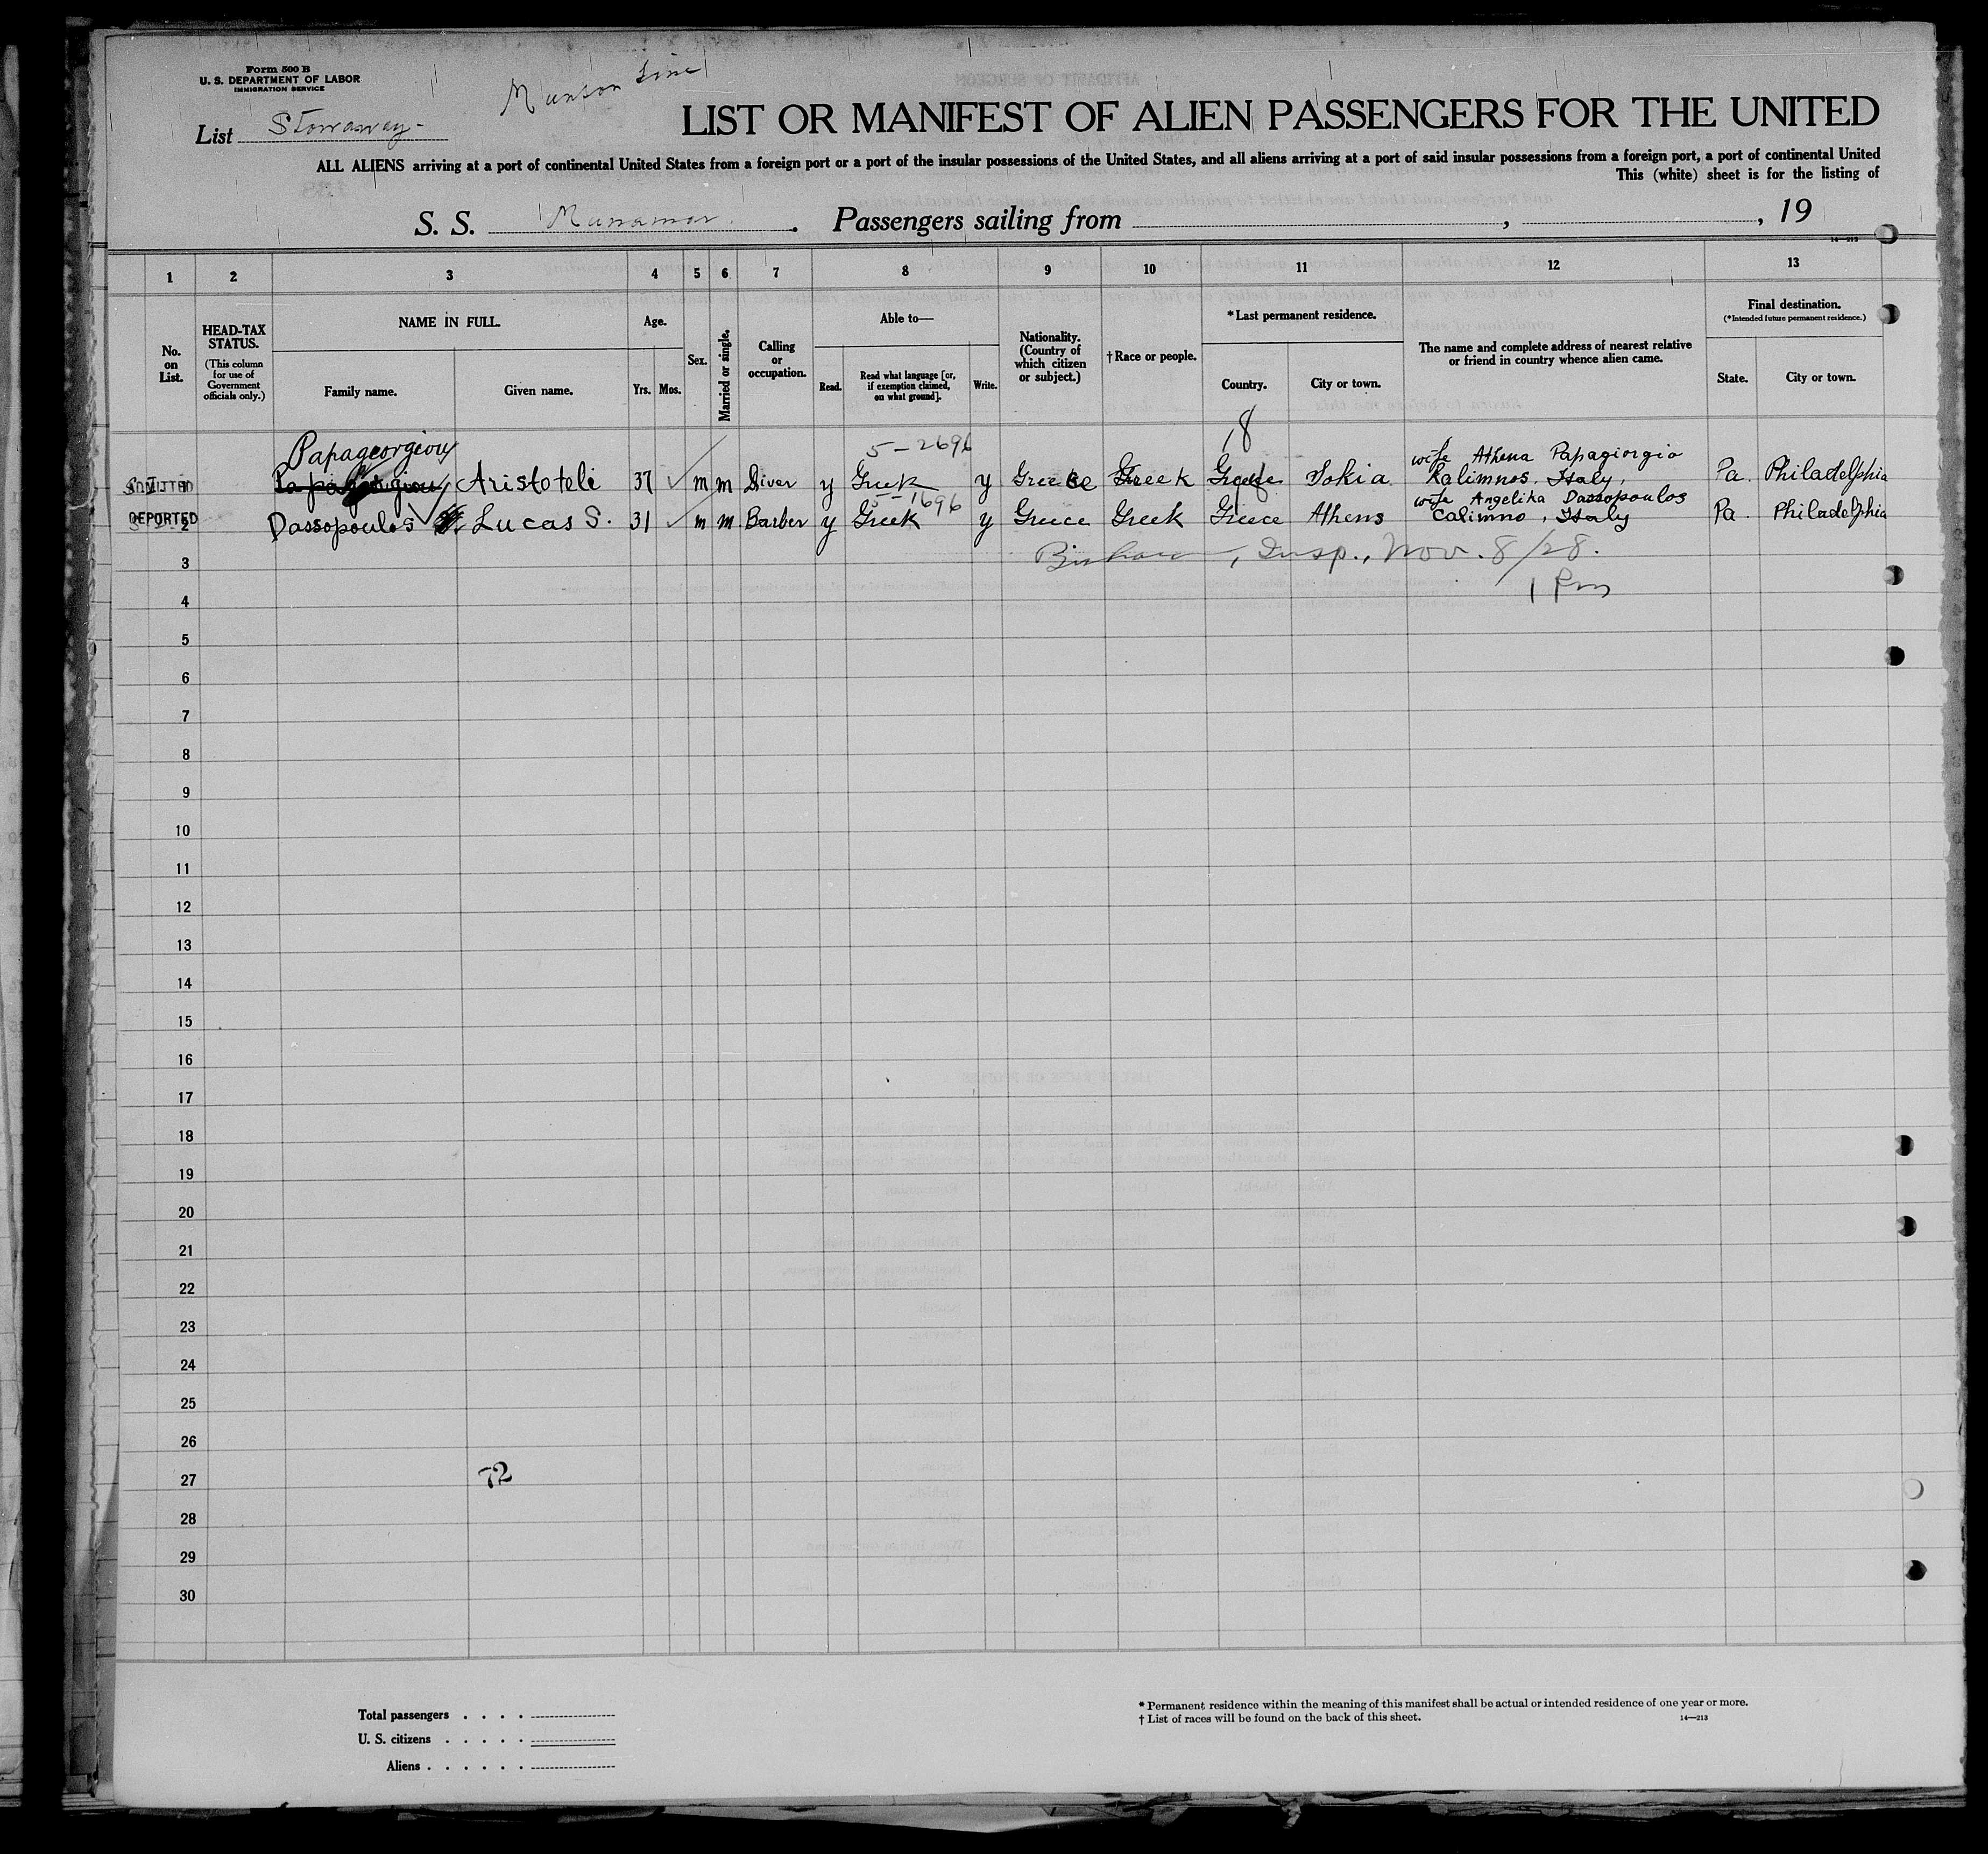 Form 500 B
U. S. DEPARTMENT OF LABOR
IMMIGRATION SERVICE
Munson Line
List Stowaway-
LIST OR MANIFEST OF ALIEN PASSENGERS FOR THE UNITED
ALL ALIENS arriving at a port of continental United States from a foreign port or a port of the insular possessions of the United States, and all aliens arriving at a port of said insular possessions from a foreign port, a port of continental United
This (white) sheet is for the listing of
S. S. Munamar. Passengers sailing from , , 19
14—213
1 2 3 4 5 6 7 8 9 10 11 12 13
No. on List.
HEAD-TAX STATUS.
(This column for use of Government officials only.)
NAME IN FULL.
Family name. Given name.
Age.
Yrs. Mos.
Sex.
Married or single.
Calling or occupation.
Able to—
Read. Read what language [or, if exemption claimed, on what ground]. Write.
Nationality. (Country of which citizen or subject.)
†Race or people.
*Last permanent residence.
Country. City or town.
The name and complete address of nearest relative or friend in country whence alien came.
Final destination.
(*Intended future permanent residence.)
State. City or town.
18
Papageorgiou 5-2696 wife Athena Papagiorgio
ADMITTED 1 Aristoteli 37 m m Diver y Greek y Greece Greek Greece Sokia Kalimnos, Italy, Pa. Philadelphia
5-1696 wife Angelika Dassopoulos
DEPORTED 2 Dassopoulos Lucas S. 31 m m Barber y Greek y Greece Greek Greece Athens Calimno, Italy Pa. Philadelphia
3 , Insp., Nov. 8/28.
1 Pm
4
5
6
7
8
9
10
11
12
13
14
15
16
17
18
19
20
21
22
23
24
25
26
27 72
28
29
30
Total passengers . . . .
U. S. citizens . . . . .
Aliens . . . . . .
* Permanent residence within the meaning of this manifest shall be actual or intended residence of one year or more.
† List of races will be found on the back of this sheet.
14—213